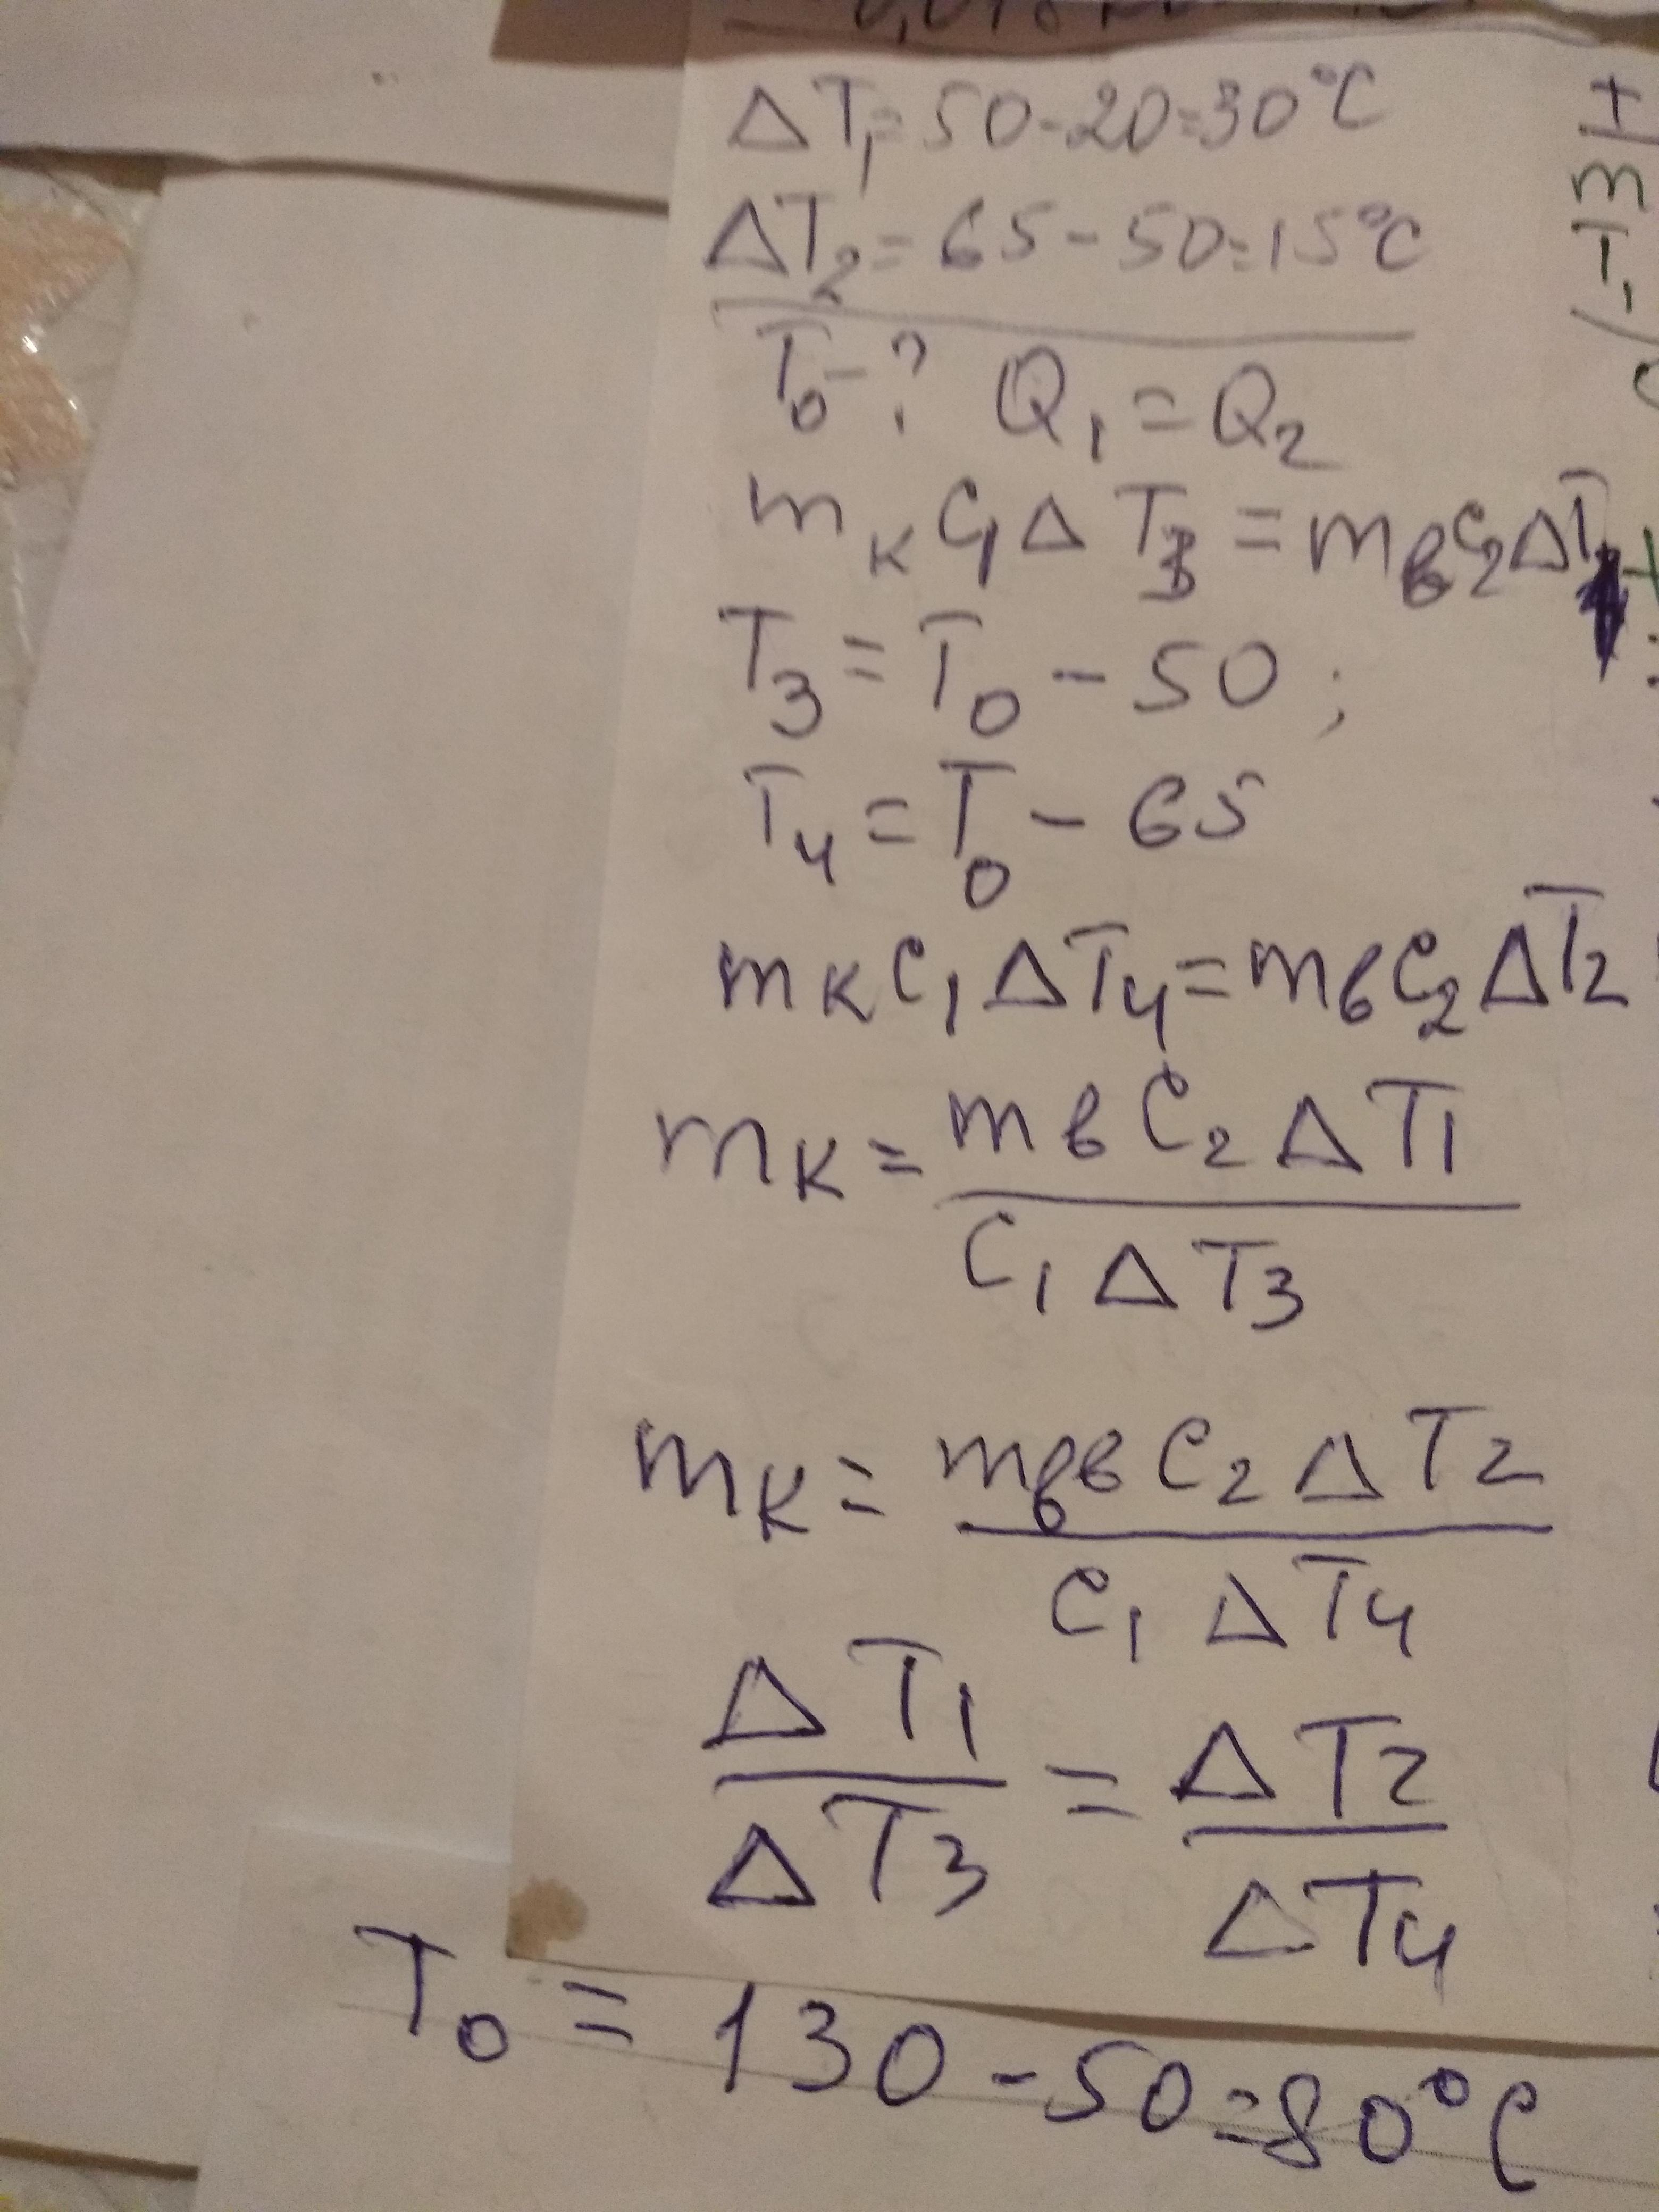 ΔT₁=50-20=30°C
ΔT₂=65-50=15°C
T₀-? Q₁=Q₂
mкC₁ΔT₃=mвC₂ΔT₁
T₃=T₀-50;
T₄=T₀-65
mкC₁ΔT₄=mвC₂ΔT₂
mк=mвC₂ΔT₁
C₁ΔT₃
mк=mввC₂ΔT₂
C₁ΔT₄
ΔT₁ = ΔT₂
ΔT₃ ΔT₄
T₀=130-50=80°C